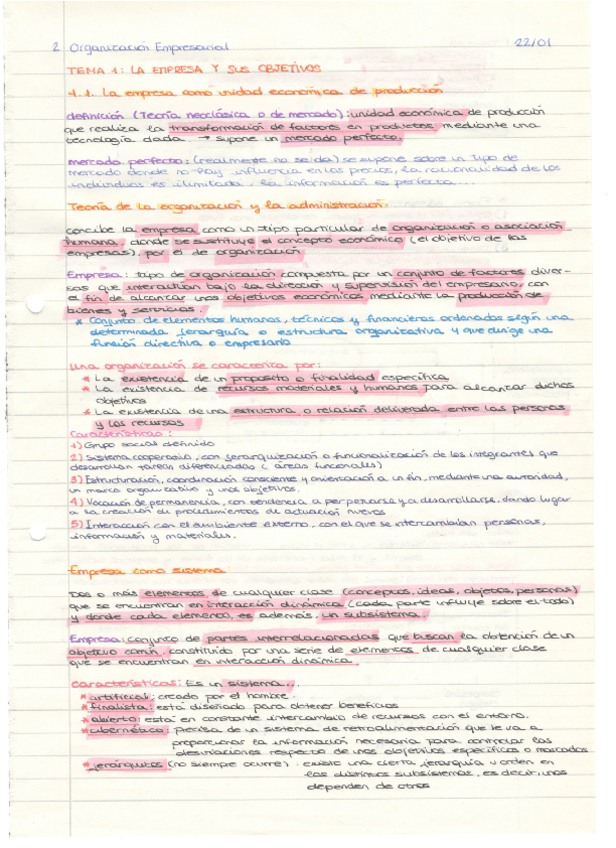 2 Organización Empresarial 22/01
TEMA 1: LA EMPRESA Y SUS OBJETIVOS
1.1. La empresa como unidad económica de producción
definición (Teoría neoclásica o de mercado): unidad económica de producción
que realiza la transformación de factores en productos mediante una
tecnología dada. → supone un mercado perfecto.
mercado perfecto: (realmente no se da) se supone sobre un tipo de
mercado donde no hay influencia en los precios, la racionalidad de los
individuos es ilimitada, la información es perfecta...
Teoría de la organización y la administración.
concibe la empresa como un tipo particular de organización o asociación
humana, donde se sustituye el concepto económico (el objetivo de las
empresas), por el de organización
Empresa: tipo de organización compuesta por un conjunto de factores diver-
sos que interactúan bajo la dirección y supervisión del empresario, con
el fin de alcanzar unos objetivos económicos mediante la producción de
bienes y servicios.
* Conjunto de elementos humanos, técnicos y financieros ordenados según una
determinada jerarquía o estructura organizativa y que dirige una
función directiva o empresario
Una organización se caracteriza por:
* La existencia de un propósito o finalidad específica
* La existencia de recursos materiales y humanos para alcanzar dichos
objetivos
* La existencia de una estructura o relación deliberada entre las personas
y los recursos
Características:
1) Grupo social definido
2) Sistema cooperativo, con jerarquización o funcionalización de los integrantes que
desarrollan tareas diferenciadas (áreas funcionales)
3) Estructuración, coordinación consciente y orientación a un fin, mediante una autoridad,
un marco organizativo y unos objetivos.
4) Vocación de permanencia, con tendencia a perpetuarse y a desarrollarse, dando lugar
a la creación de procedimientos de actuación nuevos
5) Interacción con el ambiente externo, con el que se intercambian personas,
información y materiales.
Empresa como sistema
Dos o más elementos de cualquier clase (conceptos, ideas, objetos, personas)
que se encuentran en interacción dinámica (cada parte influye sobre el todo)
y donde cada elemento, es además, un subsistema.
Empresa: conjunto de partes interrelacionadas que buscan la obtención de un
objetivo común, constituido por una serie de elementos de cualquier clase
que se encuentran en interacción dinámica
Características: Es un sistema...
* artificial: creado por el hombre.
* finalista: está diseñado para obtener beneficios
* abierto: está en constante intercambio de recursos con el entorno.
* cibernético: precisa de un sistema de retroalimentación que le va a
proporcionar la información necesaria para controlar las
desviaciones respecto de unos objetivos específicos o marcados
* jerárquicos (no siempre ocurre). existe una cierta jerarquía u orden en
los distintos subsistemas, es decir, unos
dependen de otros